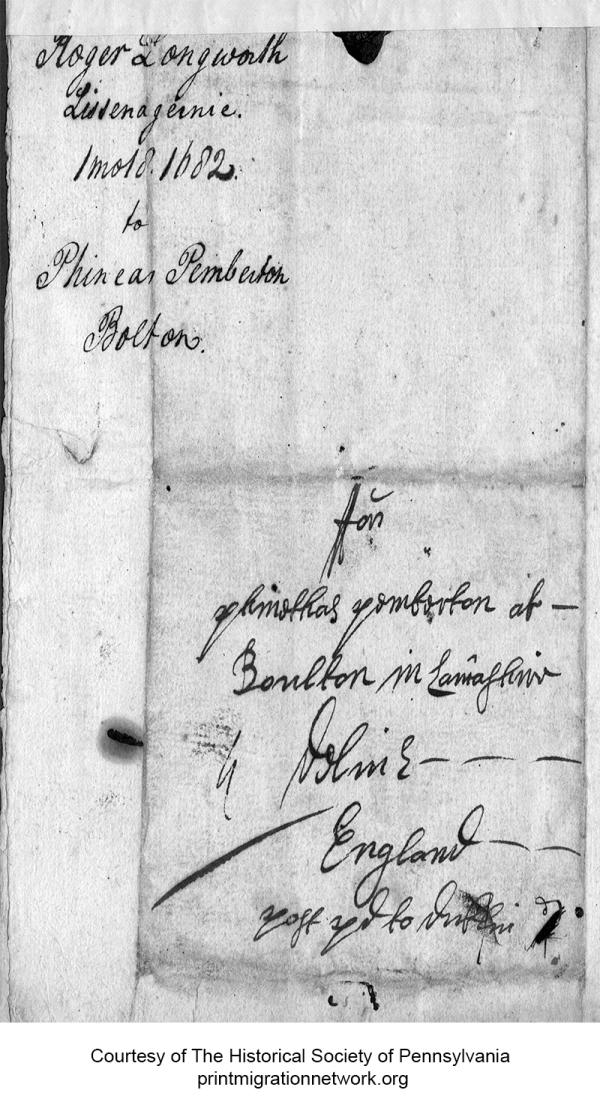 Roger Longworth
Lissenagernie.
1 mo 18. 1682.
to
Phineas Pemberton
Bolton.
ffor
phinethas pemberton at —
Boulton in Lancashire
dd in E — — —
England — —
post pd to dublin
Courtesy of The Historical Society of Pennsylvania
printmigrationnetwork.org